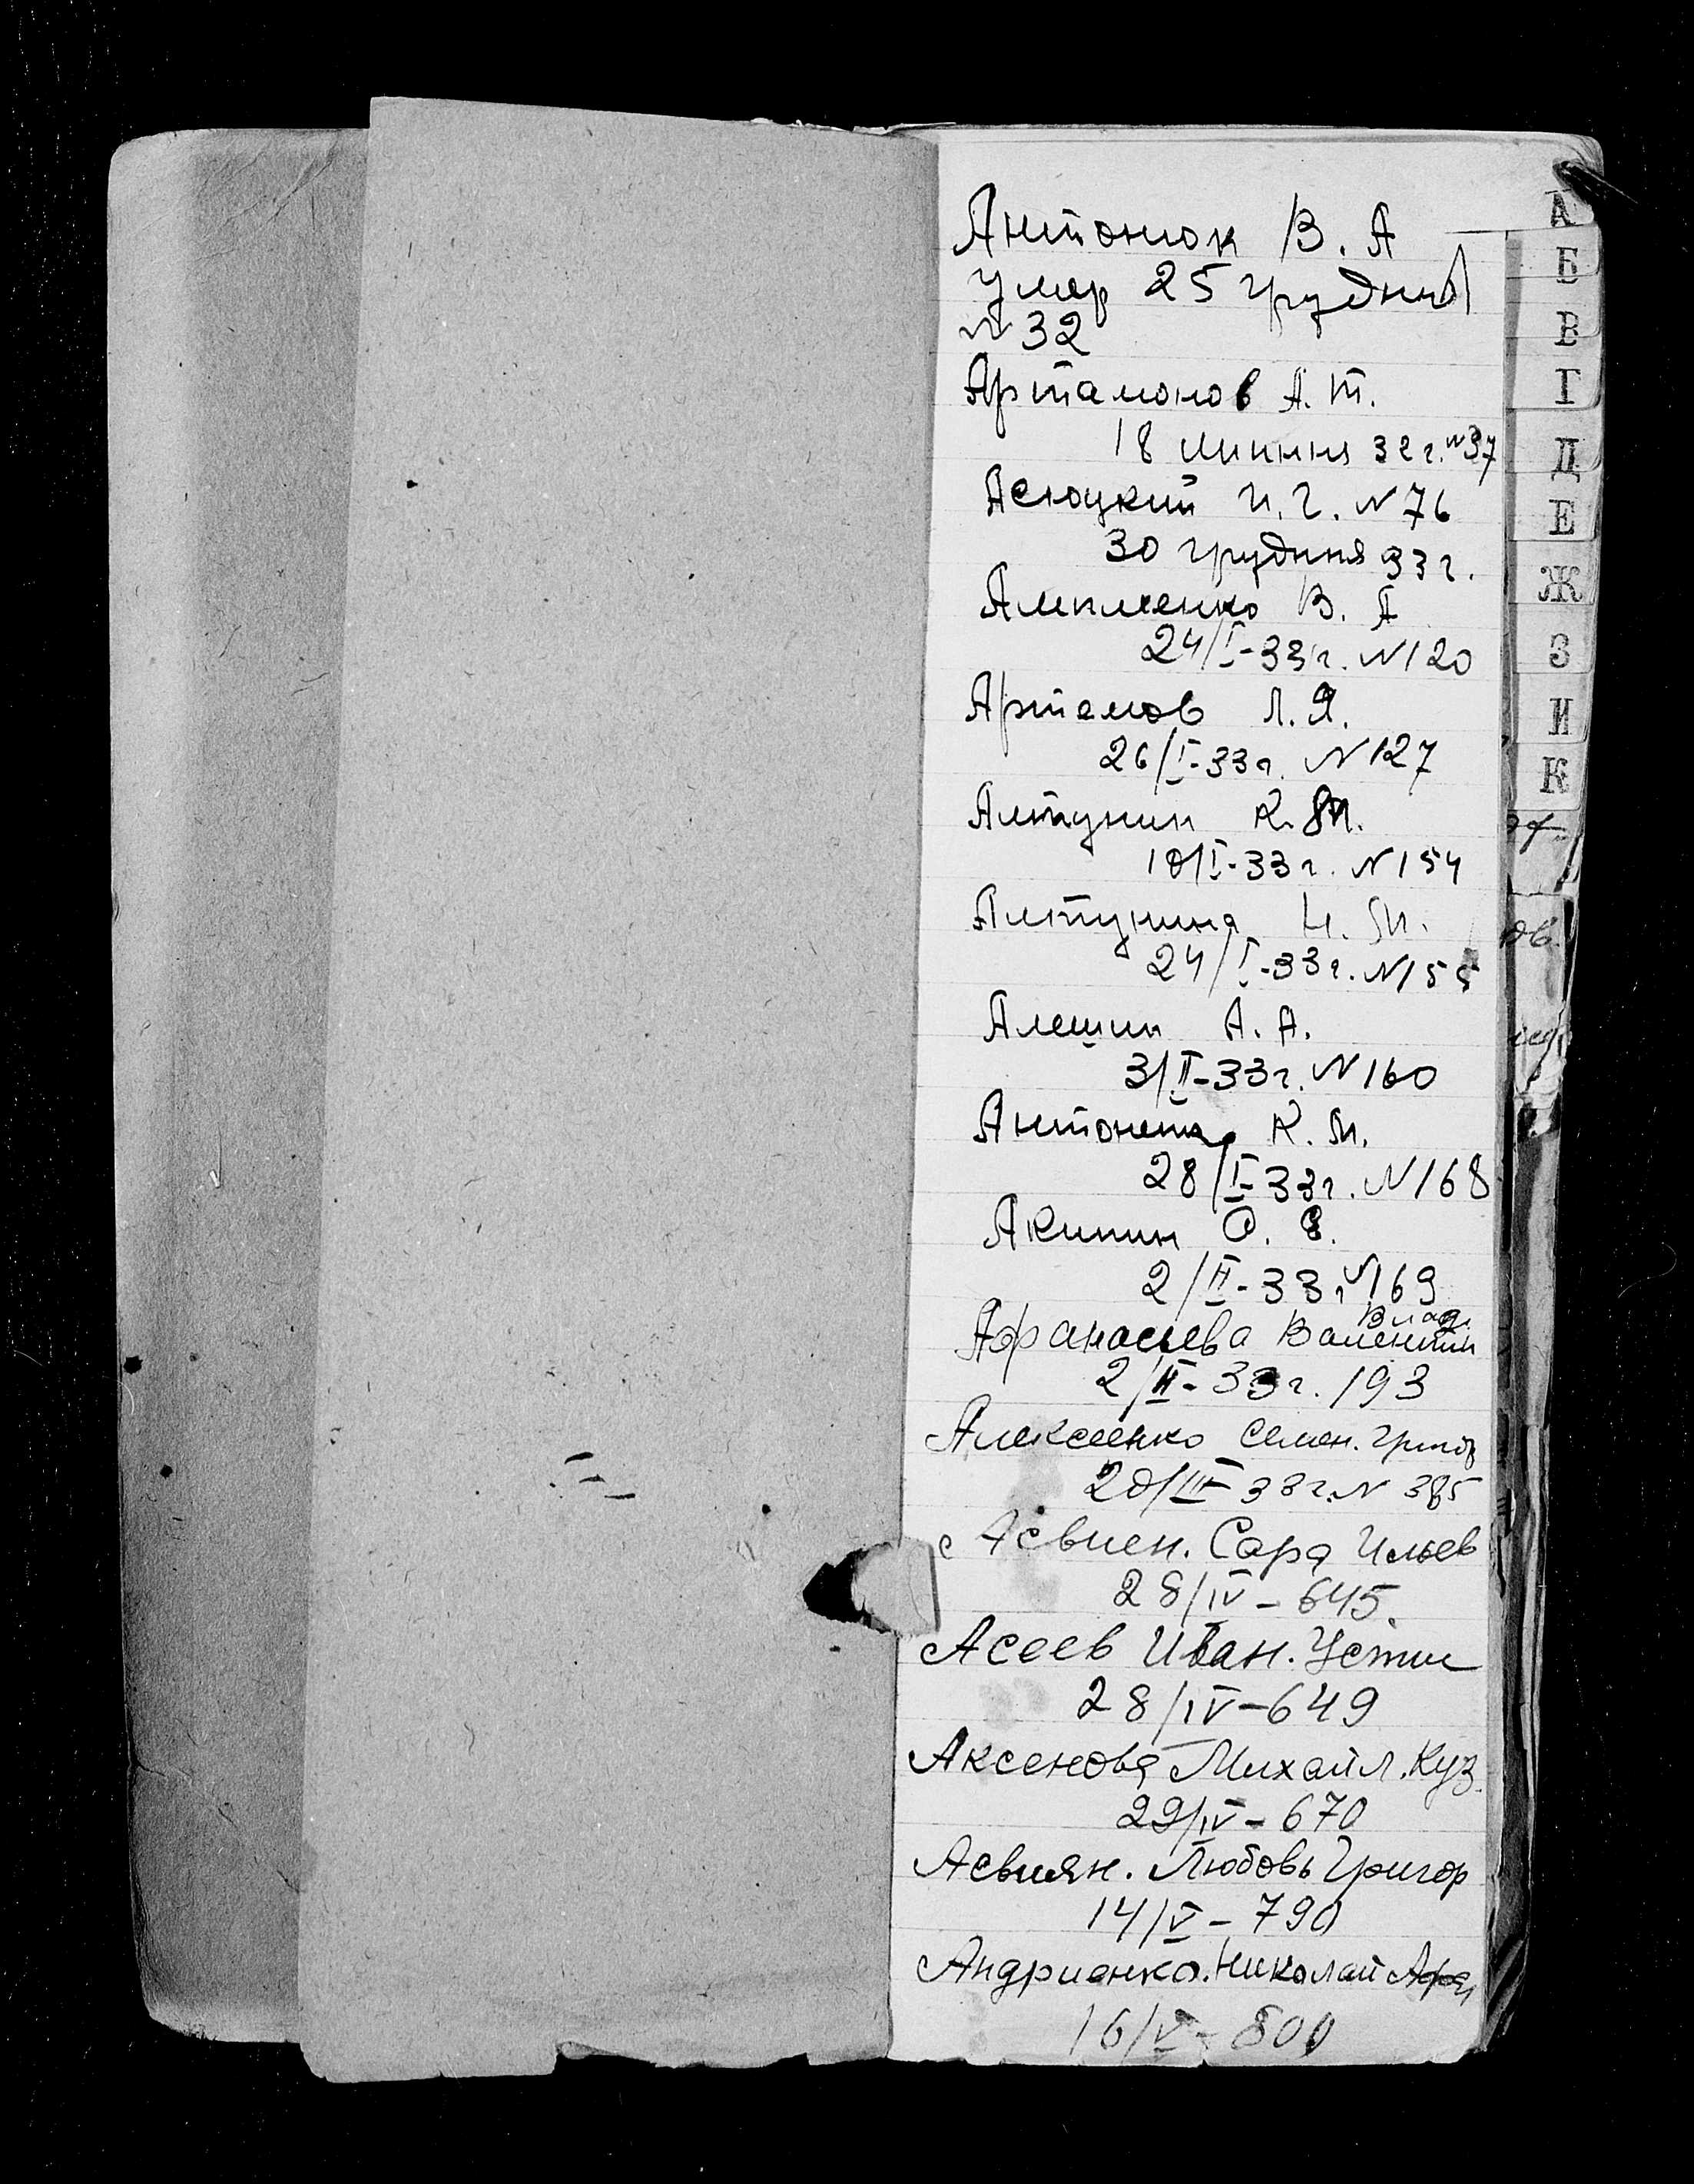 Антонюк В. А
умер 25 грудня
№ 32
Артамонов А. Т.
18 липня 32 г. № 37
И. Г. № 76
30 грудня 33 г.
В. А
24/I-33 г. № 120
Артемов Л. Я.
26/I-33 г. № 127
Алтунин К.
10/I-33 г. № 154
Алтунина Н. М.
24/I-33 г. № 155
Алешин А. А.
3/II-33 г. № 160
К. М.
28/I-33 г. № 168
Акинин О.
2/II-33 г № 169
Влад.
Афанасьева Валентин
2/II-33 г. 193
Алексеенко Семен. Григор
20/III-33 г. № 385
Асвиен. Сара Ильев
28/IV-645.
Асеев Иван. Устин
28/IV-649
Аксенова Михайл. Куз.
29/IV-670
Асвиян. Любовь Григор
14/V-790
Андриенко. Николай
16/V-800
А
Б
В
Г
Д
Е
Ж
З
И
К